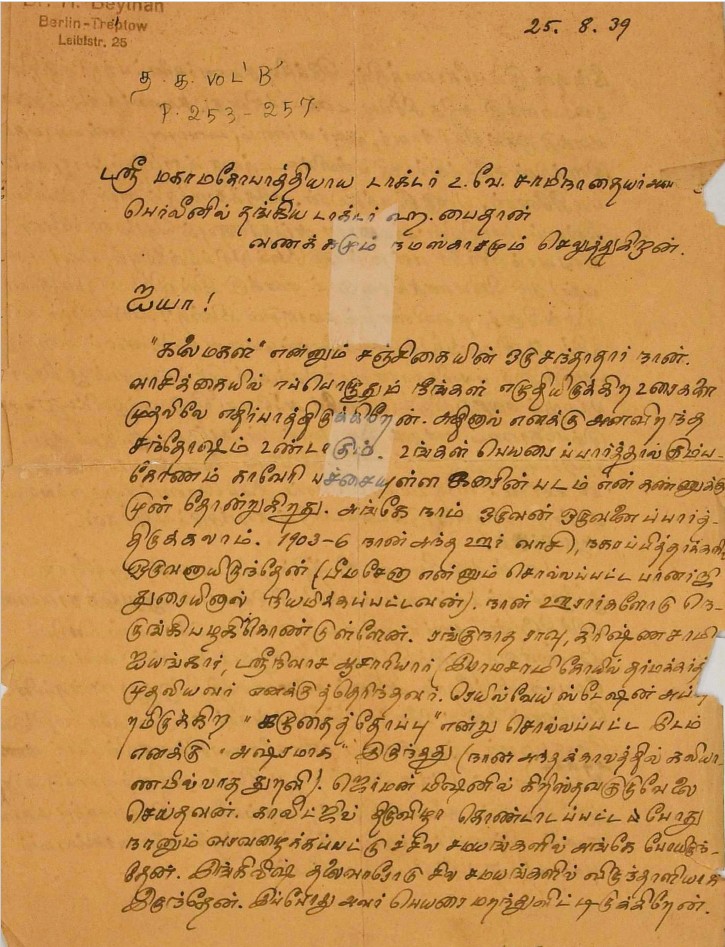 Dr. H. Beythan
Berlin-Treptow
Leiblstr. 25
25. 8. 39
த. க. VOL 'B'
P. 253 - 257.
ஸ்ரீ மகாமகோபாத்தியாய டாக்டர் உ. வே. சாமிநாதையர்
பெர்லீனில் தங்கிய டாக்டர் ஹ. பைதான்
வணக்கமும் நமஸ்காரமும் செலுத்துகிறன்.
ஐயா!
"கலைமகள்" என்னும் சஞ்சிகையின் ஒரு சந்தாதார் நான்.
வாசிக்கையில் எப்பொழுதும் நீங்கள் எழுதியிருக்கிற உரைகளை
முதலிலே எதிர்பாத்திருக்கிறேன். அதினால் எனக்கு அளவிறந்த
சந்தோஷம் உண்டாகும். உங்கள் பெயரைப்பார்த்தால் கும்ப-
கோணம் காவேரி பச்சையுள்ள கரையின் படம் என் கண்ணுக்கு
முன் தோன்றுகிறது. அங்கே நாம் ஒருவன் ஒருவனைப்பார்த்
திருக்கலாம். 1903-6 நான் அந்த ஊர் வாசி,
ஒருவனாயிருந்தேன் (பீமசேன என்னும் சொல்லப்பட்ட
துரையினால் நியமிக்கப்பட்டவன்). நான் ஊரார்களோடு நெ-
ருங்கிபழகிக்கொண்டுள்ளேன். ரங்குநாத ராவு, கிரிஷ்ணசாமி
ஐயங்கார், ஸ்ரீநிவாச ஆசாரியார் (இராமசாமிகோயில் தர்மகர்த்
முதலியவர் எனக்குத்தெரிந்தவர். ரெயில்வேய் ஸ்டேஷன் அப்பு
றமிருக்கிற "கழுதைத்தோப்பு" என்று சொல்லப்பட்ட இடம்
எனக்கு "அஷ்ரமாக" இருந்தது (நான் அந்தக்காலத்தில் கலியா
ணமில்லாத துறவி). ஜெர்மன் மிஷனில் கிறிஸ்தவகுருவேலை
செய்தவன். காலீட்ஜில் திருவிழா கொண்டாடப்பட்ட போது
நானும் வரவழைக்கப்பட்டு ச்சில சமயங்களில் அங்கே போயிருந்-
தேன். இங்கிலீஷ் தலைவரோடு சில சமயங்களில் விருந்தாளியாக
இருந்தேன். இப்போது அவர் பெயரை மறந்துவிட்டிருக்கிறேன்.